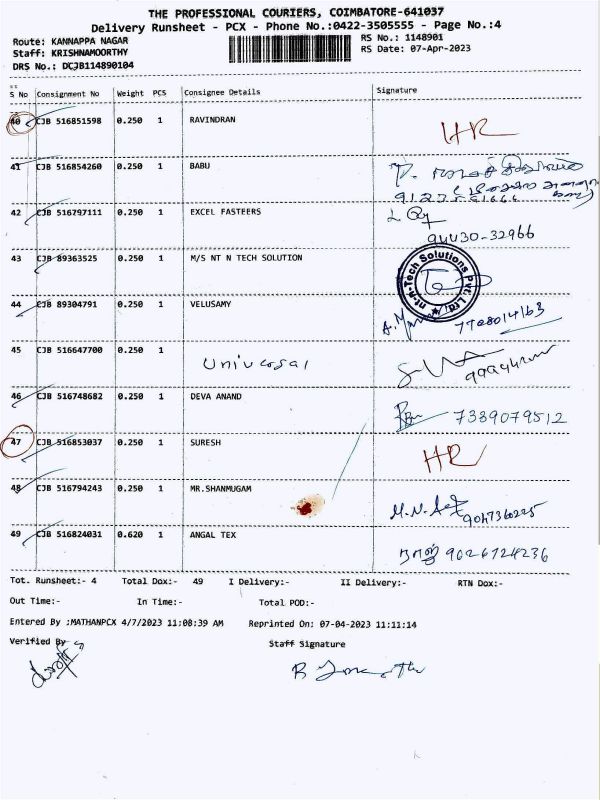 THE PROFESSIONAL COURIERS, COIMBATORE-641037
Delivery Runsheet - PCX - Phone No.:0422-3505555 - Page No.:4
Route: KANNAPPA NAGAR
RS No.: 1148901
Staff: KRISHNAMOORTHY
RS Date: 07-Apr-2023
DRS No.: DCJB114890104
S No Consignment No Weight PCS Consignee Details Signature
40 CJB 516851598 0.250 1 RAVINDRAN HR
41 CJB 516854260 0.250 1 BABU
42 CJB 516797111 0.250 1 EXCEL FASTEERS
94430-32966
43 CJB 89363525 0.250 1 M/S NT N TECH SOLUTION
nt-n-Tech Solutions Pvt. Ltd.
44 CJB 89304791 0.250 1 VELUSAMY
45 CJB 516647700 0.250 1 Universal
46 CJB 516748682 0.250 1 DEVA ANAND 7339079512
47 CJB 516853037 0.250 1 SURESH HR
48 CJB 516794243 0.250 1 MR.SHANMUGAM
49 CJB 516824031 0.620 1 ANGAL TEX 9026724236
Tot. Runsheet:- 4 Total Dox:- 49 I Delivery:- II Delivery:- RTN Dox:-
Out Time:- In Time:- Total POD:-
Entered By :MATHANPCX 4/7/2023 11:08:39 AM Reprinted On: 07-04-2023 11:11:14
Verified By Staff Signature